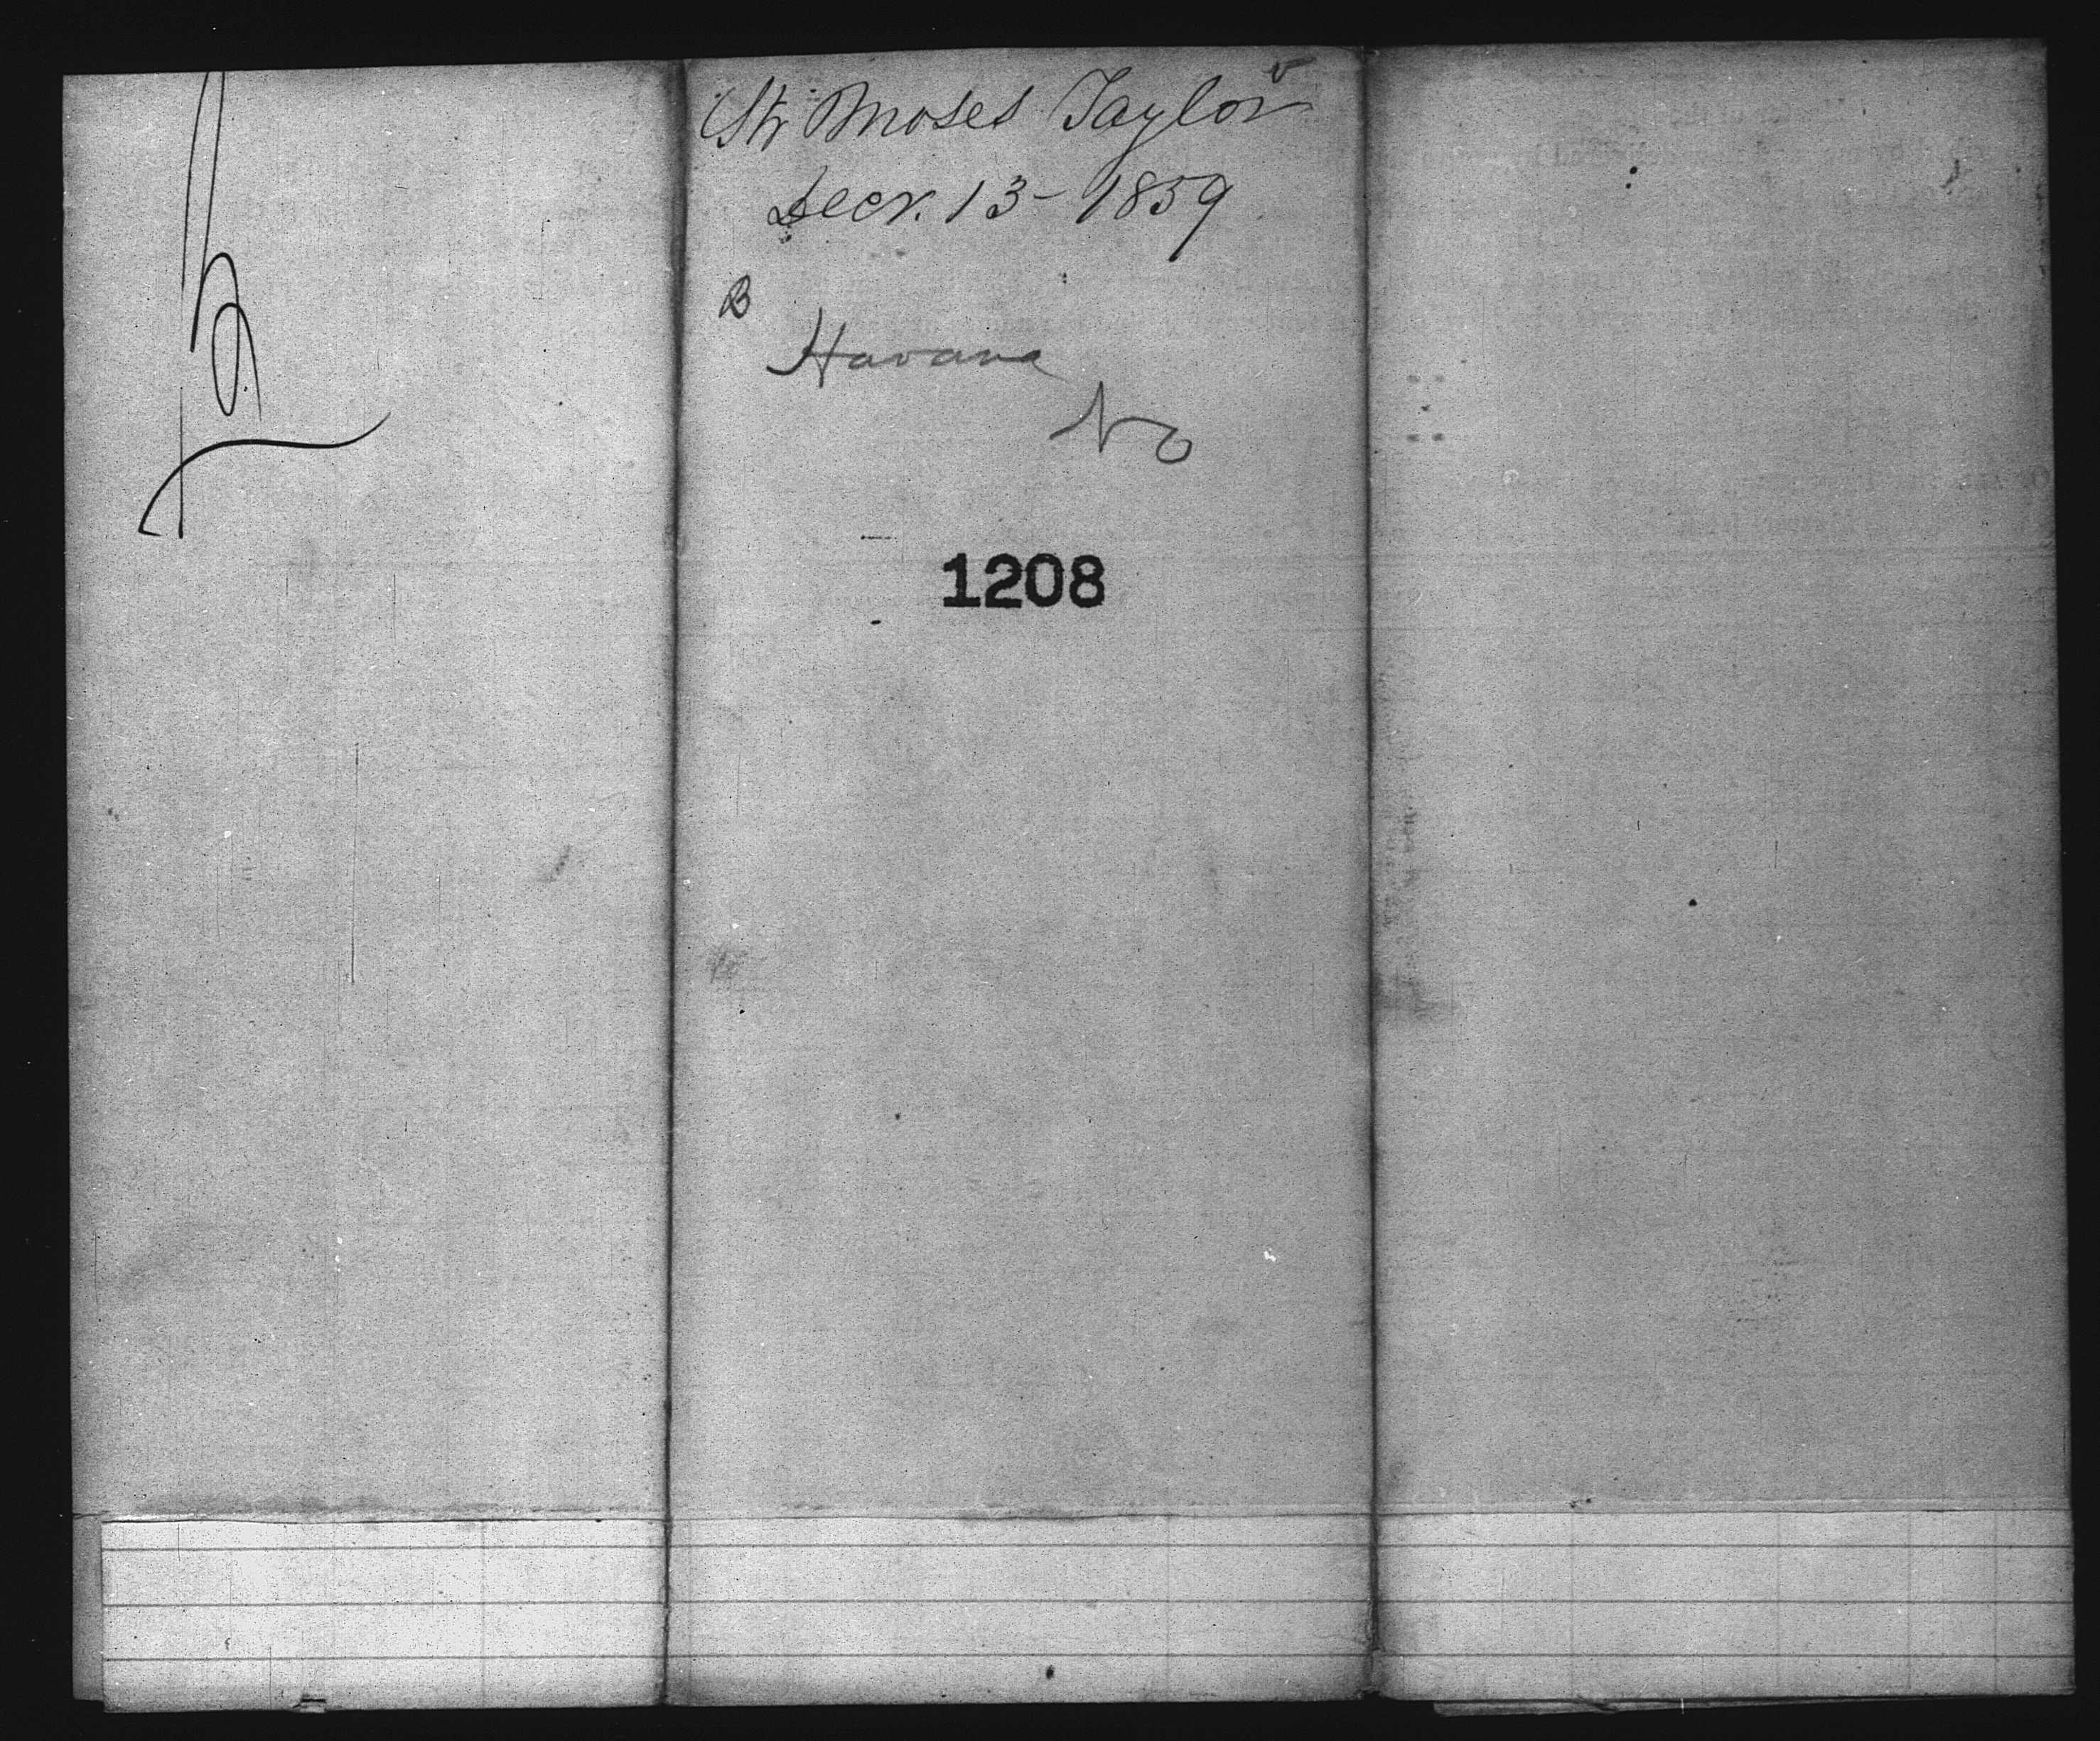 Str Moses Taylor
Decr. 13 - 1859
B
Havana
No
1208